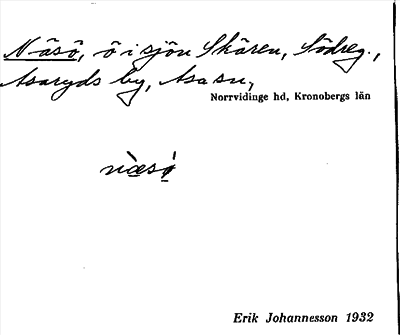 Näsö, ö i sjön Skären, Södreg.,
Asaryds by, Asa sn,
Norrvidinge hd, Kronobergs län
næ̀sö́
Erik Johannesson 1932